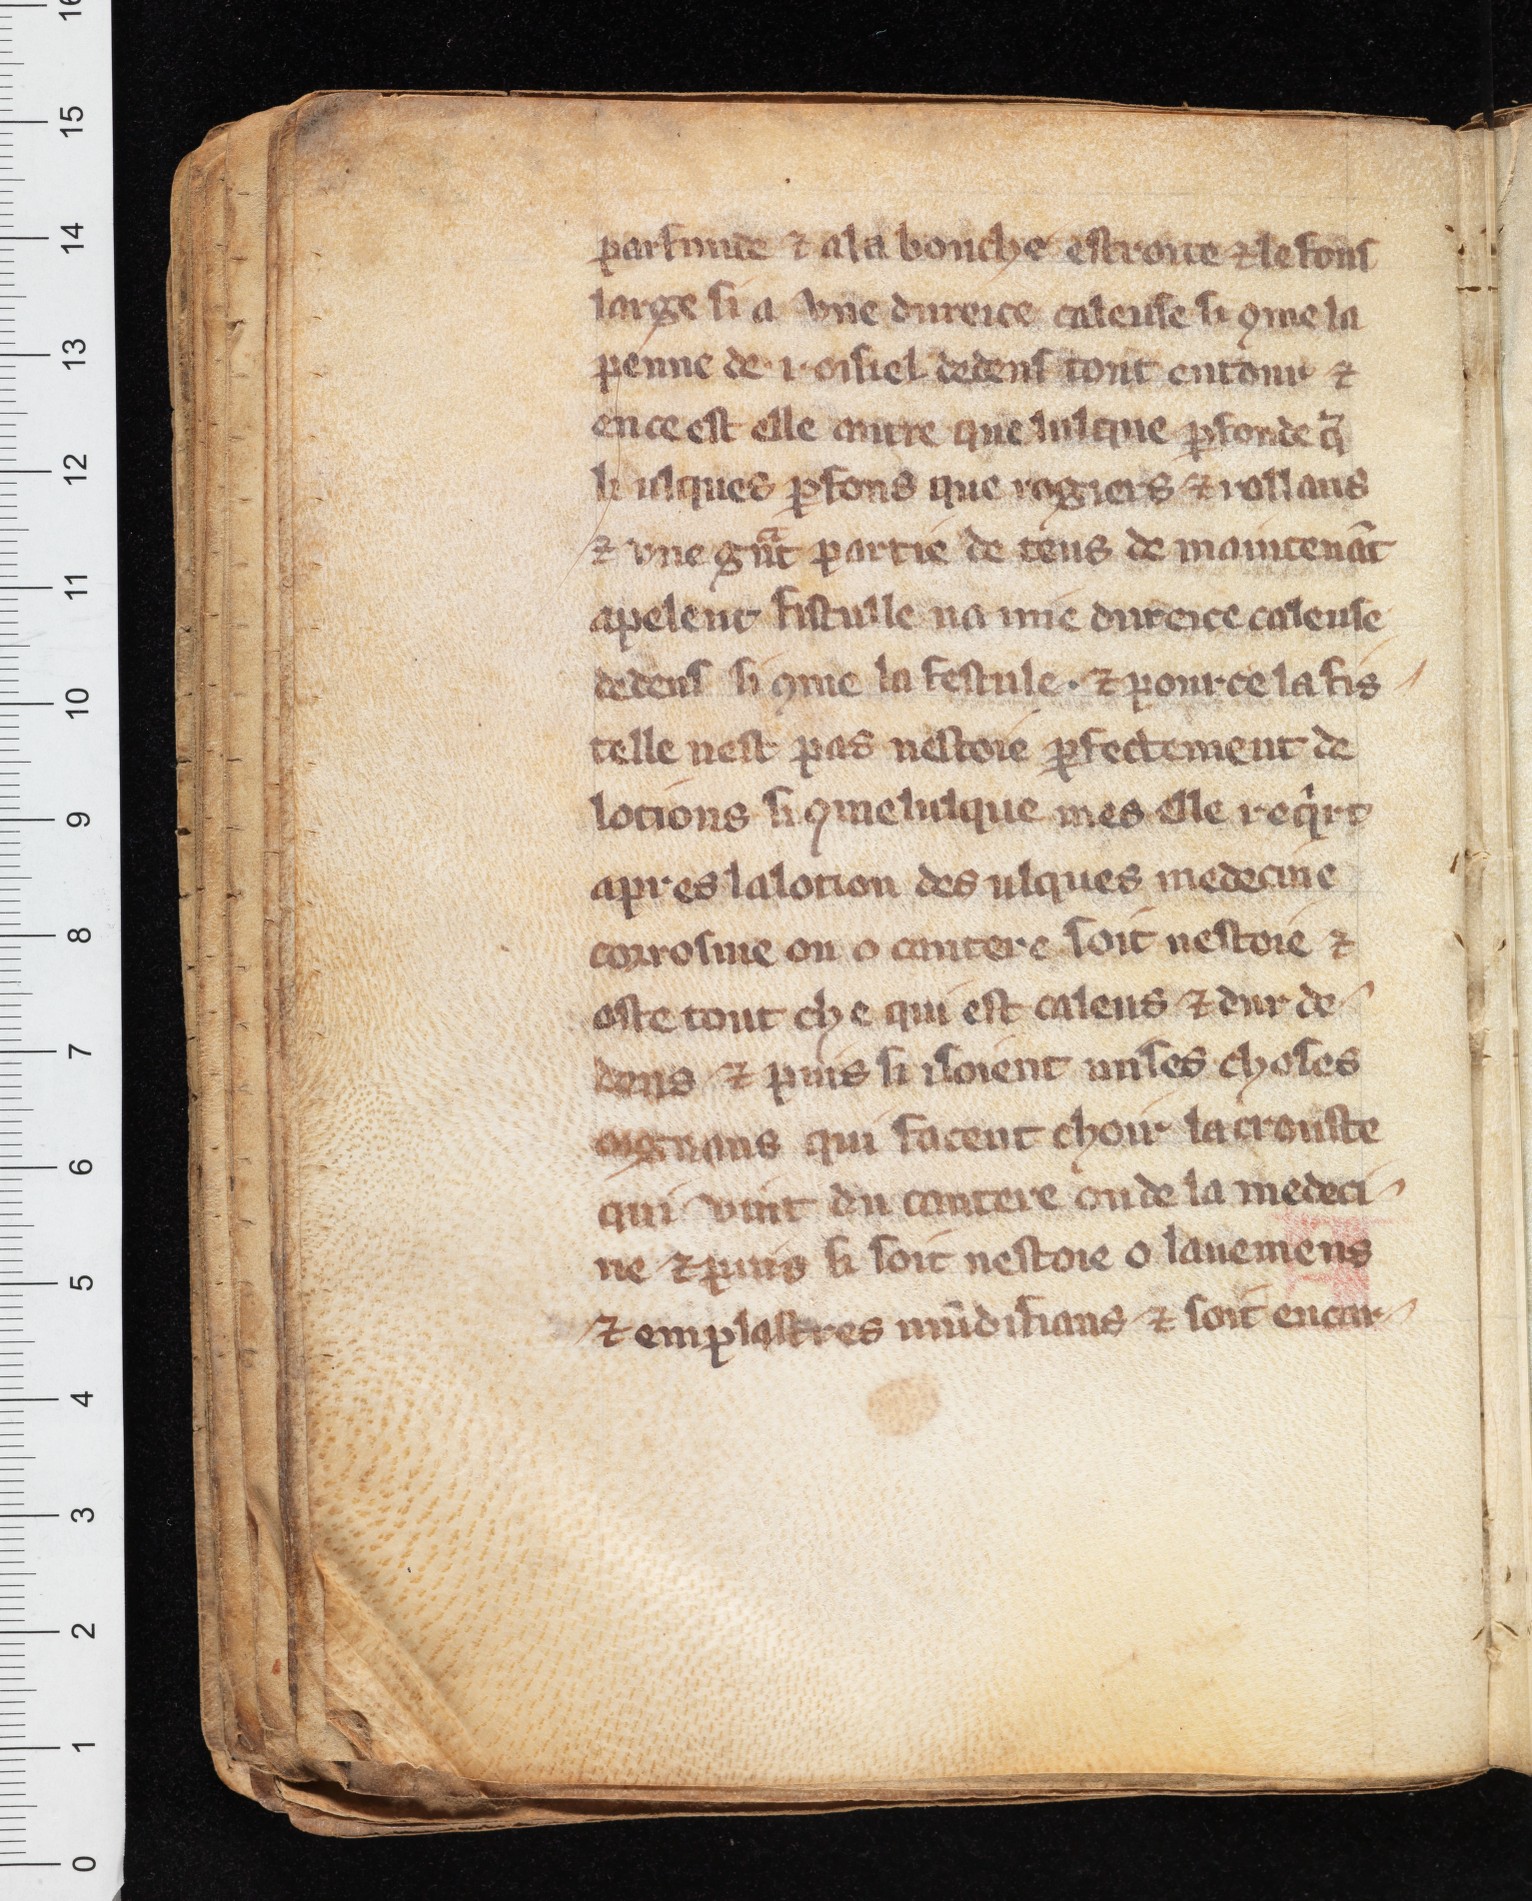 parfunde ⁊ a la bouche estroite ⁊ le fons
large si a vne dureice caleuse si 9me la
penne de ·i· oisiel dedens tout entour ⁊
en ce est elle autre que lulcque ꝑfonde q̃
li ulques ꝑfons que rogiers ⁊ rollans
⁊ vne gͣnt partie de ceus de maintenãt
apelent fistulle na mie dureice caleuse
dedens si 9me la festule · ⁊ pour ce la fis
telle nest pas nestoie ꝑfectement de
lotions si 9me lulque mes elle reqͥrt
apres la lotion des ulques medecine
corrosiue ou o cautere soit nestoie ⁊
oste tout che qui est caleus ⁊ dur de
dens ⁊ puis si i soient mises choses
oignans qui facent choir la crouste
qui vint du cautere ou de la medeci
ne ⁊ puis si soit nestoie o lauemens
⁊ emplastres mũdifians ⁊ soit encar
0
1
2
3
4
5
6
7
8
9
10
11
12
13
14
15
16